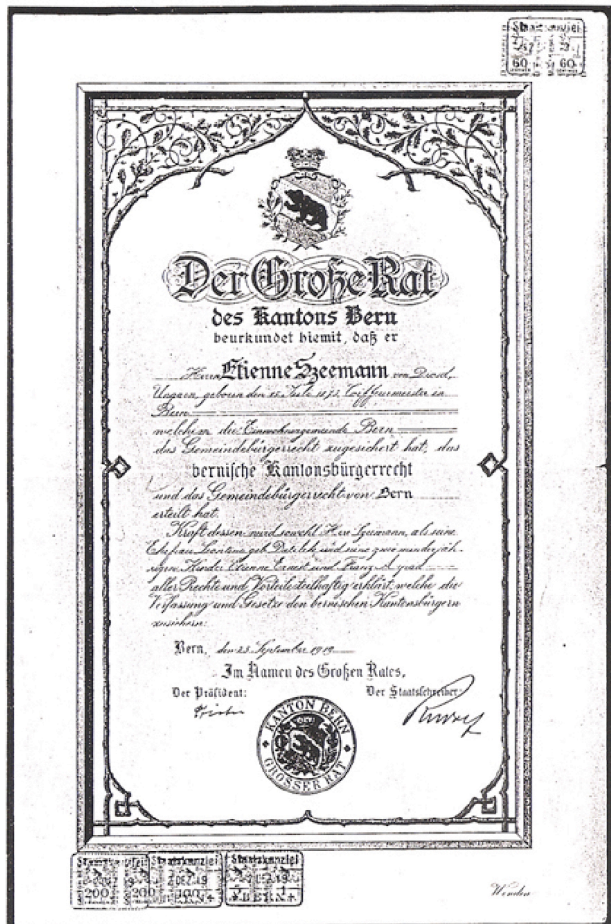 Staatskanzlei
60 60
Der Große Rat
des Kantons Bern
beurkundet hiemit, daß er
Herrn Etienne Szeemann von
Ungarn, geboren den 15. Coiffeurmeister in
Bern
welchem die Einwohnergemeinde Bern
das Gemeindebürgerrecht zugesichert hat, das
bernische Kantonsbürgerrecht
und das Gemeindebürgerrecht von Bern
erteilt hat.
Kraft dessen wird sowohl Herr Szeemann, als seine
Ehefrau Leontine geb. und seine zwei minderjäh-
rigen Kinder Etienne Ernest und Franz
aller Rechte und Vorteile teilhaftig erklärt, welche die
Verfassung und Gesetze den bernischen Kantonsbürgern
zusichern.
Bern, den 23. September 1919
Im Namen des Großen Rates,
Der Präsident: Der Staatschreiber:
KANTON BERN
GROSSER RAT
Staatskanzlei Staatskanzlei
200 200 100 BERN
Wenden